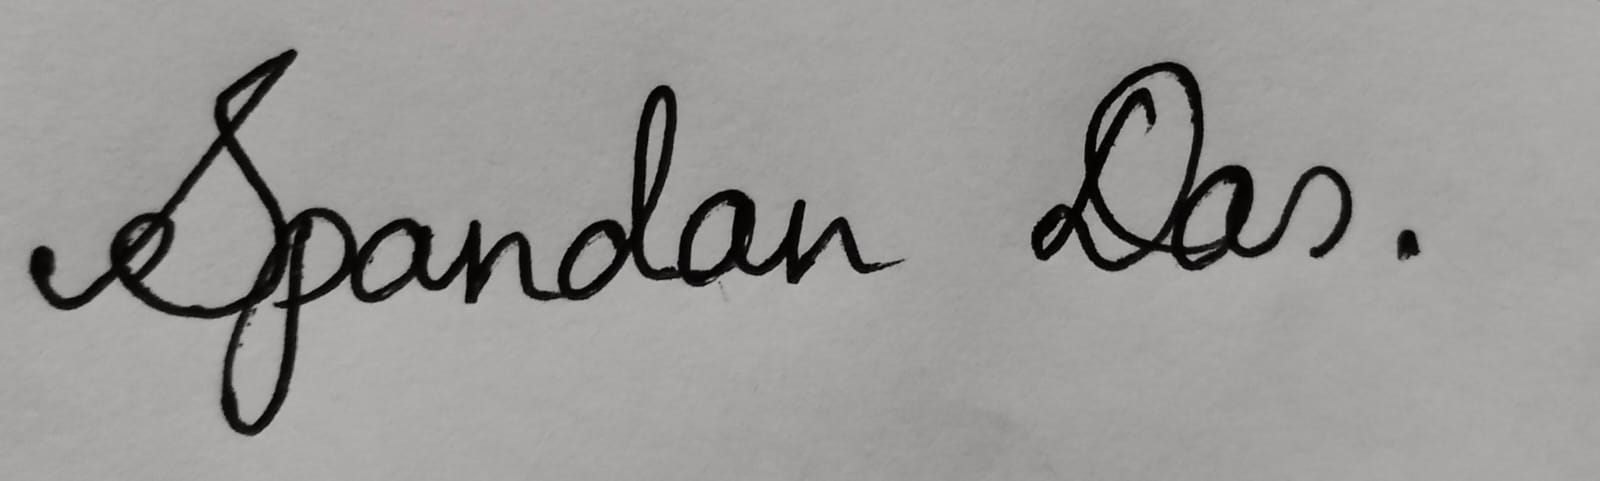 Spandan Das.